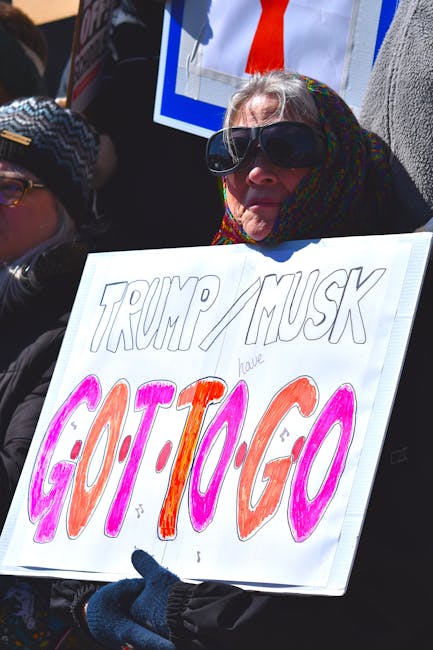 TRUMP/MUSK
have
G·O·T·TO·GO